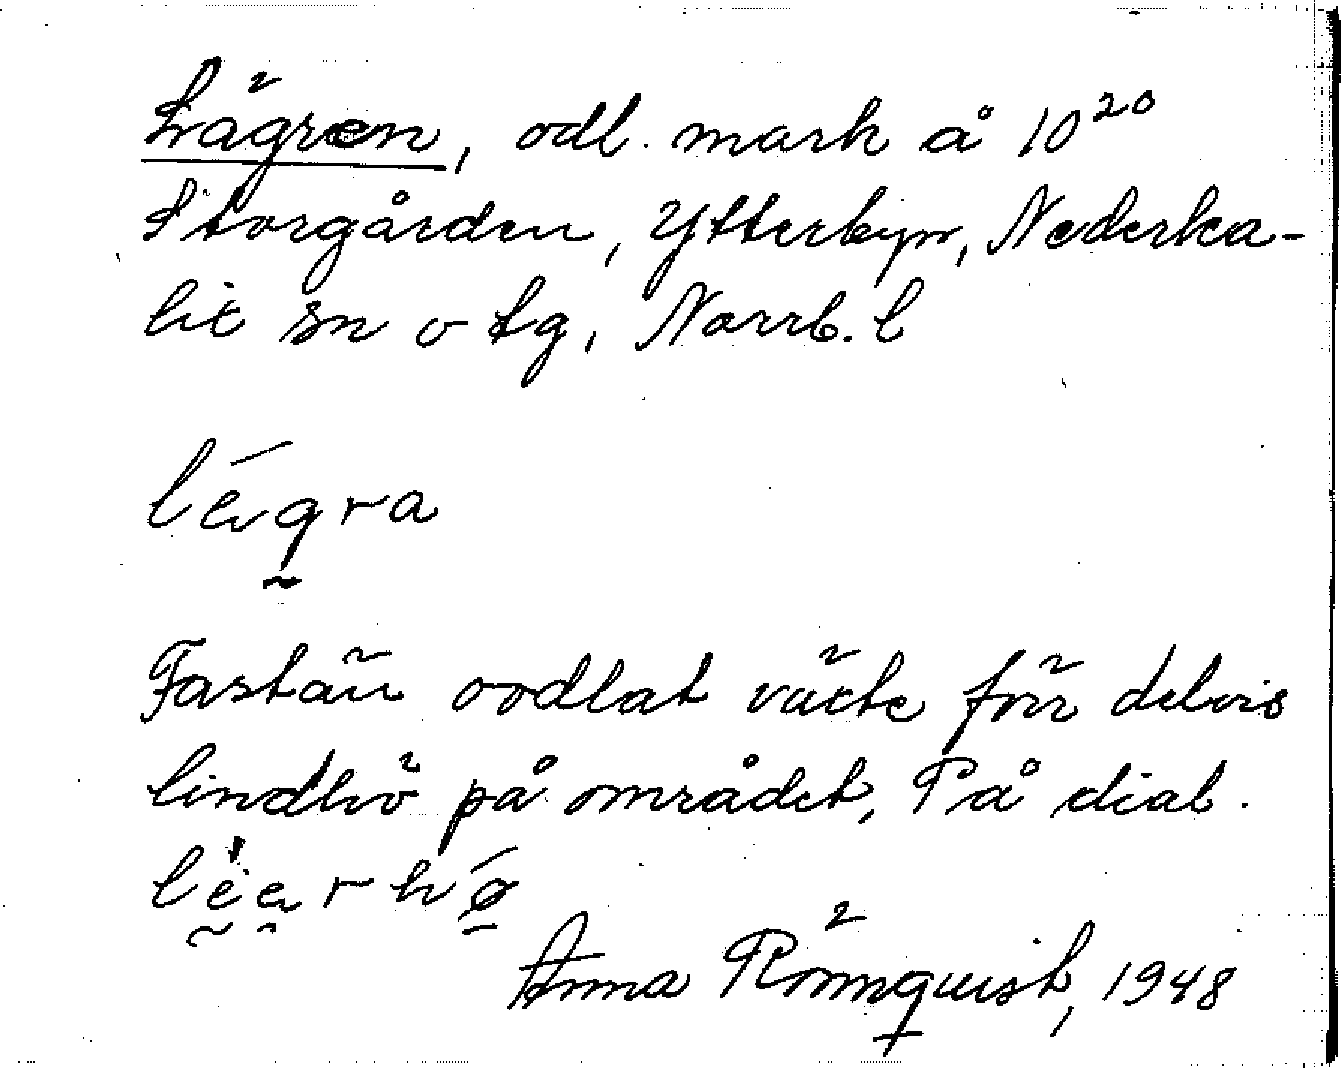 Lägren, odl. mark å 10²⁰
Storgården, Ytterbyn, Nederka-
lix sn o tg, Norrb. l
Fastän oodlat växte förr delvis
lindhö på området, På dial.
Anna Rönnquist, 1948